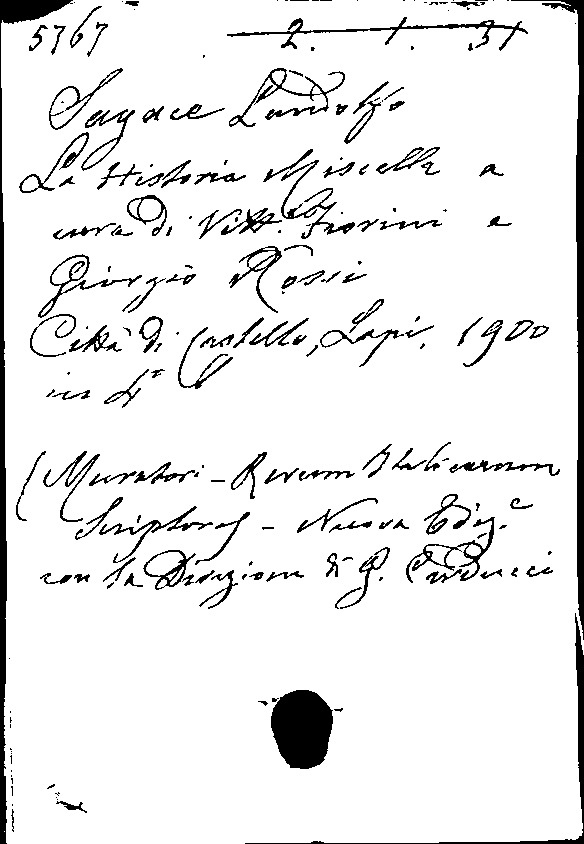 5767 2. 1. 31
Sagace Landolfo
La Historia Miscella a
cura di Vitt. Fiorini e
Giorgio Rossi
Città di Castello, Lapi, 1900
in 4°
(Muratori - Rerum Italicarum
Scriptores - Nuova Ediz.e
con la Direzione di G. Carducci